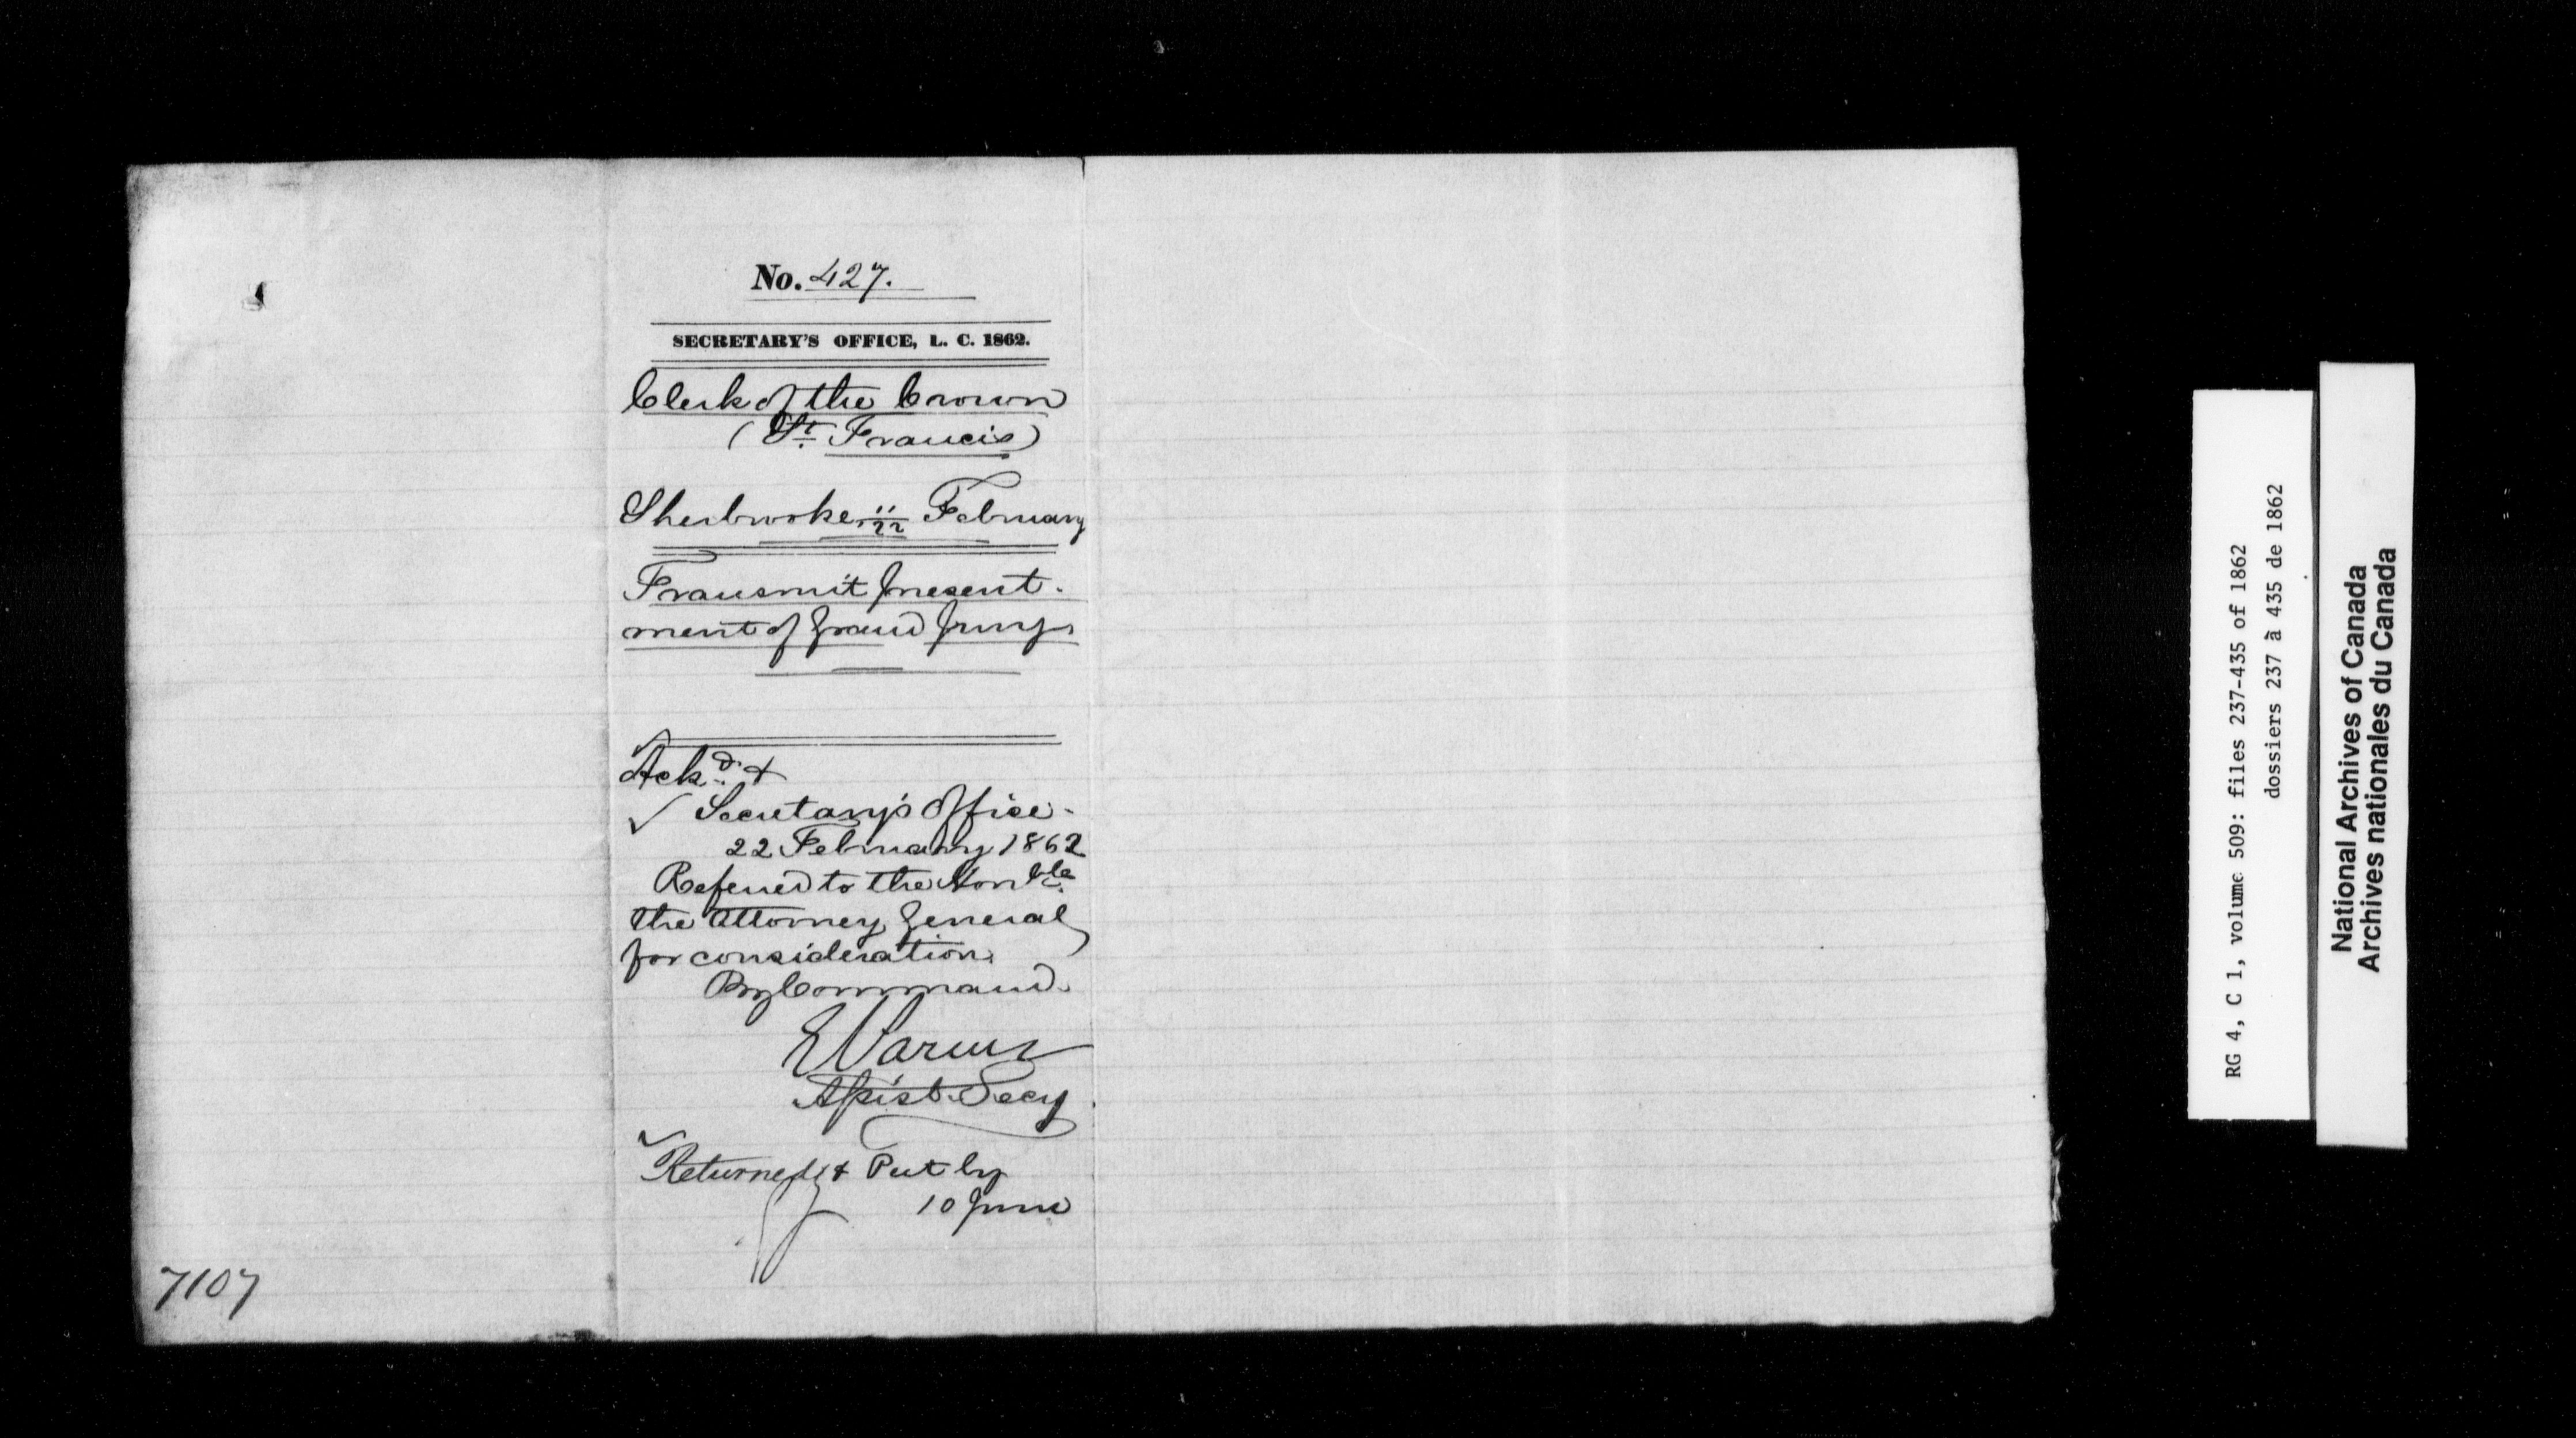 No. 427.
SECRETARY'S OFFICE, L. C. 1862.
Clerk of the Crown
(St. Francis)
Sherbrooke February
Transmit Present-
ment of Grand Jury
Ackd. &
✓ Secretary's Office
22 February 1862
Referred to the Honble.
the Attorney General
for consideration
By Command.
Assist. Secy
Returned & Put by
10 June
7107
RG 4, C 1, volume 509: files 237-435 of 1862
dossiers 237 à 435 de 1862
National Archives of Canada
Archives nationales du Canada